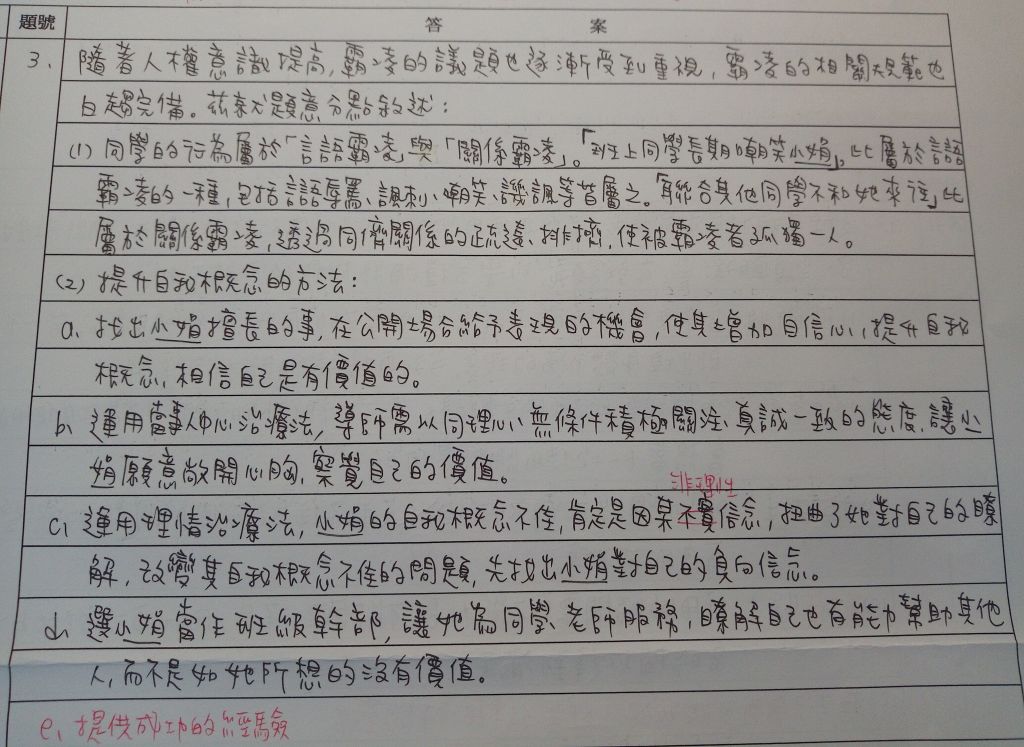 題號 答案
3. 隨著人權意識提高,霸凌的議題也逐漸受到重視,霸凌的相關規範也
日趨完備。茲就題意分點敘述:
(1) 同學的行為屬於「言語霸凌」與「關係霸凌」。「班上同學長期嘲笑小娟」,此屬於言語
霸凌的一種,包括言語辱罵、諷刺、嘲笑、譏諷等皆屬之。「聯合其他同學不和她來往」此
屬於關係霸凌,透過同儕關係的疏遠、排擠,使被霸凌者孤獨一人。
(2) 提升自我概念的方法:
a. 找出小娟擅長的事,在公開場合給予表現的機會,使其增加自信心,提升自我
概念,相信自己是有價值的。
b. 運用當事人中心治療法,導師需以同理心、無條件積極關注、真誠一致的態度,讓小
娟願意敞開心胸,察覺自己的價值。
非理性
c. 運用理情治療法,小娟的自我概念不佳,肯定是因某不實信念,扭曲了她對自己的瞭
解,改變其自我概念不佳的問題,先找出小娟對自己的負向信念。
d. 選小娟當作班級幹部,讓她為同學、老師服務,瞭解自己也有能力幫助其他
人,而不是如她所想的沒有價值。
e. 提供成功的經驗